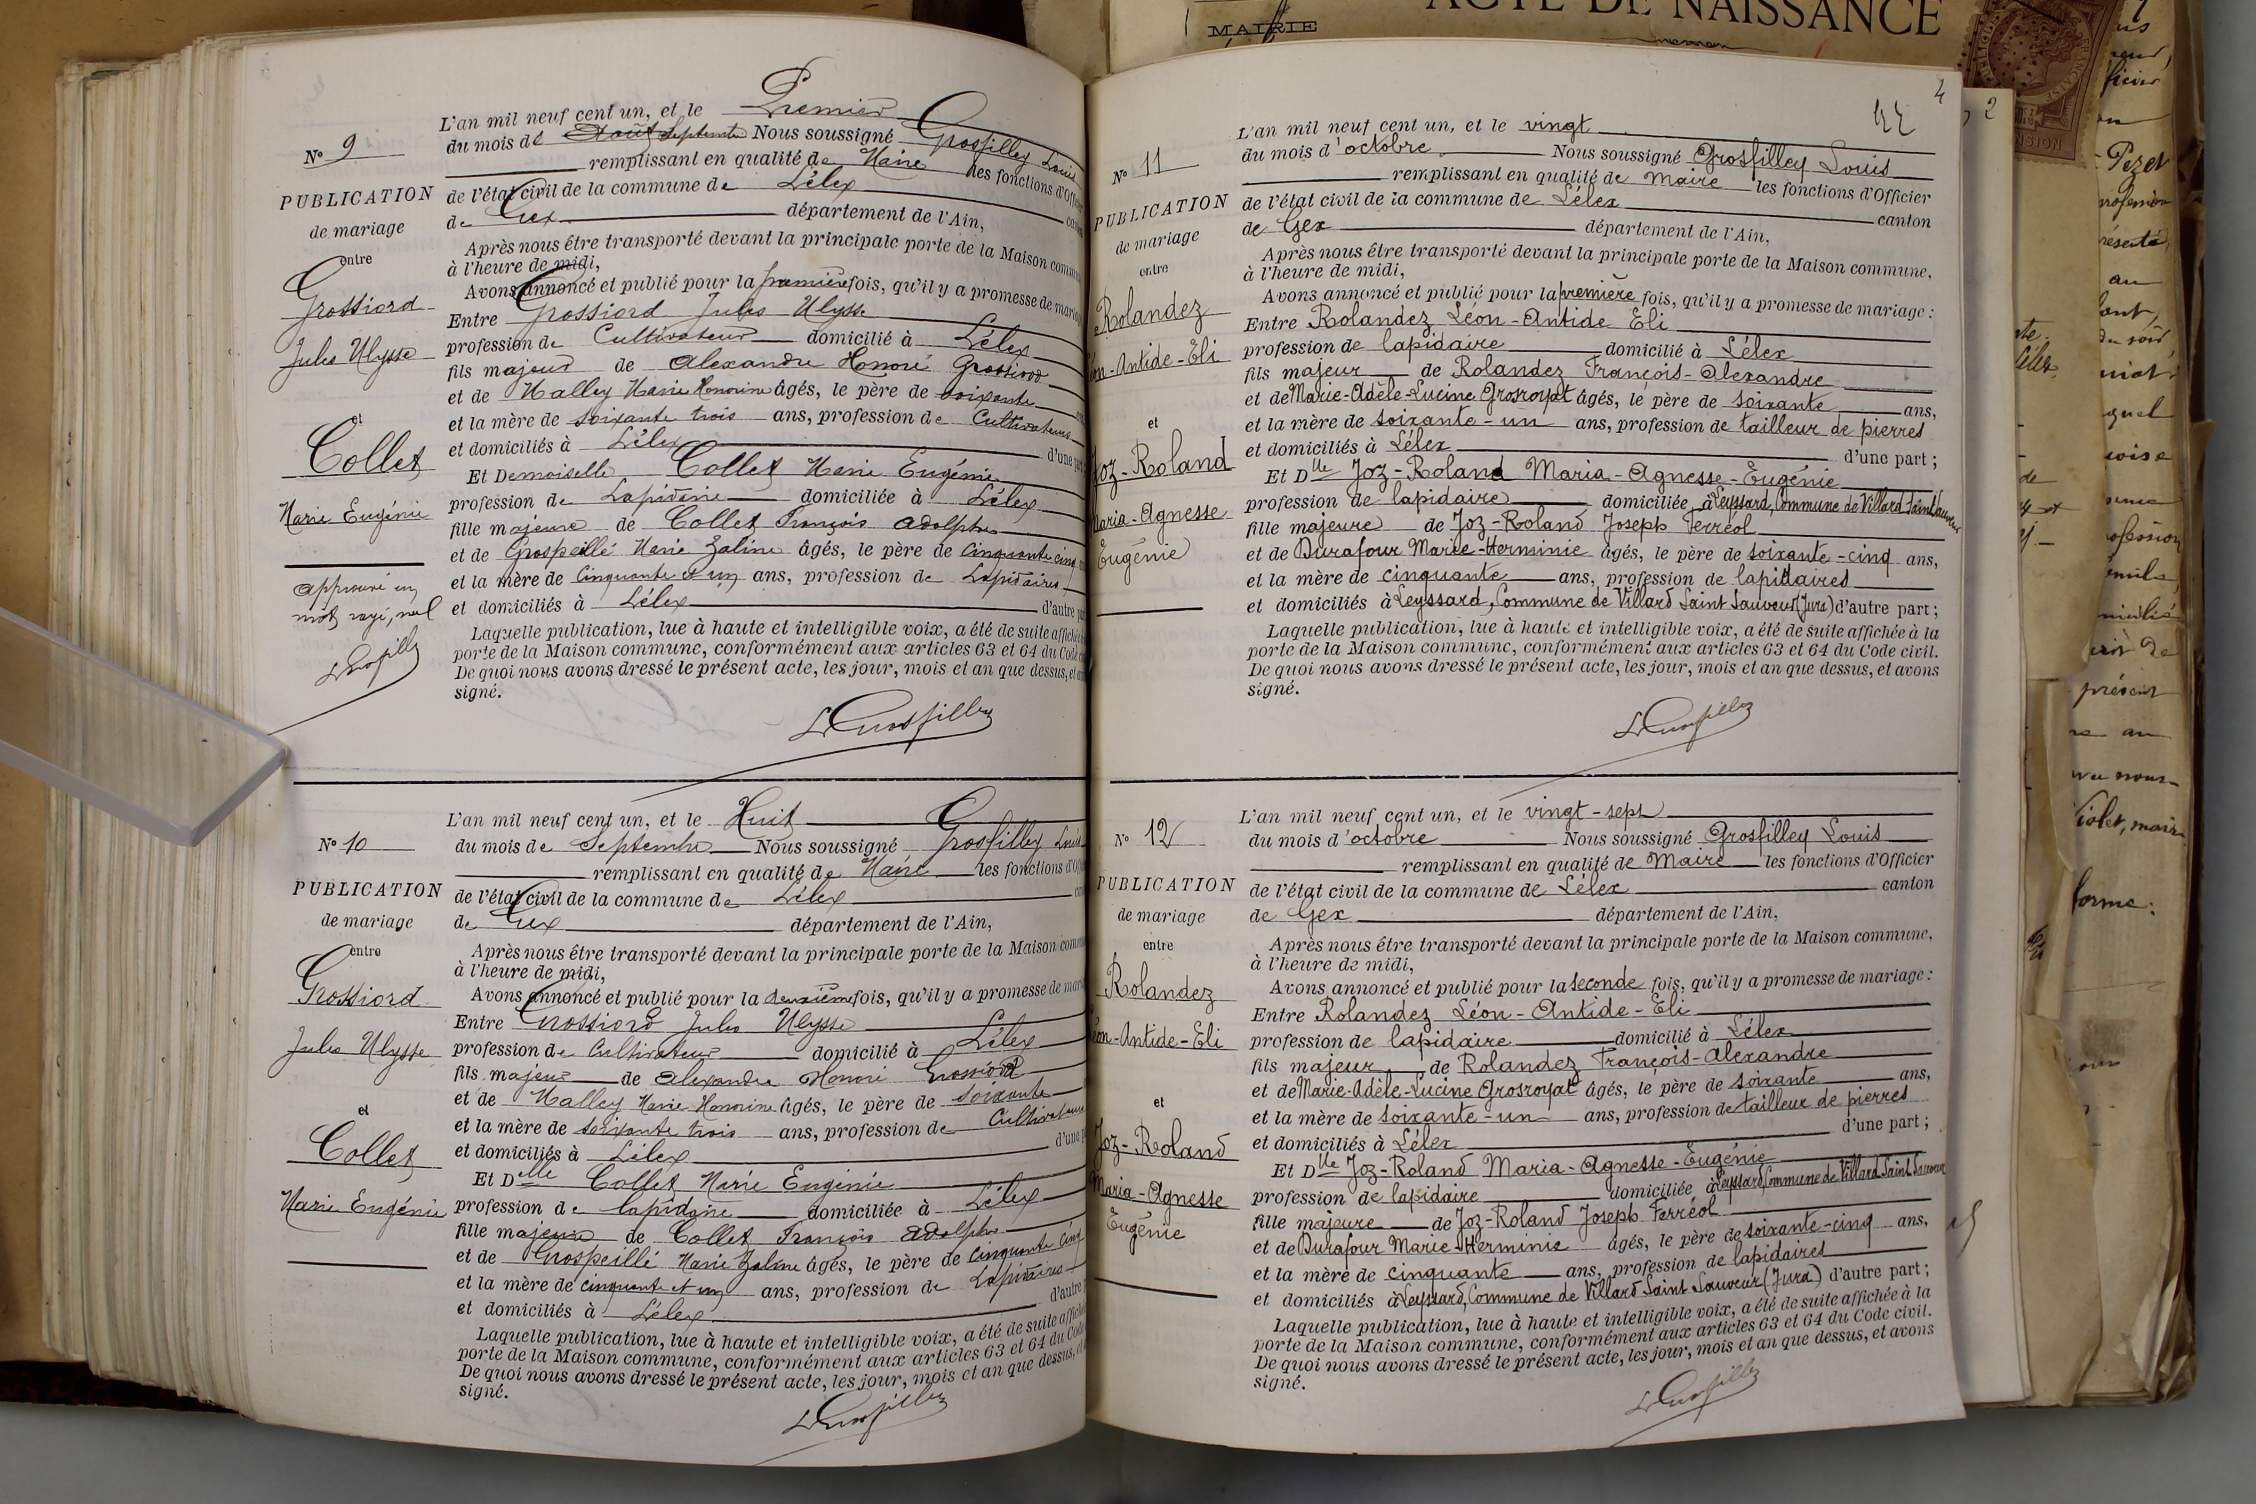 N° 9
PUBLICATION
de mariage
entre
Grossiord
Jules Ulysse
et
Collet
Marie Eugénie
approuvé un
mot rayé, nul
LGrosfilley
L'an mil neuf cent un, et le Premier
du mois de Août Septembre Nous soussigné Grosfilley Louis
remplissant en qualité de Maire les fonctions d'Offi
de l'état civil de la commune de Lélex
de Gex département de l'Ain,
Après nous être transporté devant la principale porte de la Maison commu
à l'heure de midi,
Avons annoncé et publié pour la première fois, qu'il y a promesse de maria
Entre Grossiord Jules Ulysse
profession de Cultivateur domicilié à Lélex
fils majeur de Alexandre Honoré Grossiord
et de Malley Marie Honorine âgés, le père de soixante
et la mère de soixante trois ans, profession de Cultivateurs
et domiciliés à Lélex d'une part
Et Demoiselle Collet Marie Eugénie
profession de Lapidaire domiciliée à Lélex
fille majeure de Collet François Adolphe
et de Grospeillé Marie Zaline âgés, le père de cinquante cinq
et la mère de cinquante et un ans, profession de Lapidaires
et domiciliés à Lélex d'autre pa
Laquelle publication, lue à haute et intelligible voix, a été de suite affichée
porte de la Maison commune, conformément aux articles 63 et 64 du Code
De quoi nous avons dressé le présent acte, les jour, mois et an que dessus, et a
signé.
LGrosfilley
N° 10
PUBLICATION
de mariage
entre
Grossiord
Jules Ulysse
et
Collet
Marie Eugénie
L'an mil neuf cent un, et le Huit
du mois de Septembre Nous soussigné Grosfilley Louis
remplissant en qualité de Maire les fonctions d'Of
de l'état civil de la commune de Lélex
de Gex département de l'Ain,
Après nous être transporté devant la principale porte de la Maison comm
à l'heure de midi,
Avons annoncé et publié pour la deuxième fois, qu'il y a promesse de mari
Entre Grossiord Jules Ulysse
profession de Cultivateur domicilié à Lélex
fils majeur de Alexandre Honoré Grossiord
et de Malley Marie Honorine âgés, le père de soixante
et la mère de soixante trois ans, profession de Cultivateurs
et domiciliés à Lélex d'une p
Et Delle Collet Marie Eugénie
profession de lapidaire domiciliée à Lélex
fille majeure de Collet François Adolphe
et de Grospeillé Marie Zaline âgés, le père de cinquante cinq
et la mère de cinquante et un ans, profession de Lapidaires
et domiciliés à Lélex d'autre
Laquelle publication, lue à haute et intelligible voix, a été de suite affiché
porte de la Maison commune, conformément aux articles 63 et 64 du Code
De quoi nous avons dressé le présent acte, les jour, mois et an que dessus,
signé.
LGrosfilley
MAIRIE
ACTE DE NAISSANCE
4
N° 11
PUBLICATION
de mariage
entre
Rolandez
Léon-Antide-Eli
et
Joz-Roland
Maria-Agnesse
Eugénie
L'an mil neuf cent un, et le vingt
du mois d'octobre Nous soussigné Grosfilley Louis
remplissant en qualité de maire les fonctions d'Officier
de l'état civil de la commune de Lélex canton
de Gex département de l'Ain,
Après nous être transporté devant la principale porte de la Maison commune,
à l'heure de midi,
Avons annoncé et publié pour la première fois, qu'il y a promesse de mariage :
Entre Rolandez Léon-Antide Eli
profession de lapidaire domicilié à Lélex
fils majeur de Rolandez François-Alexandre
et de Marie-Adèle-Lucine Grosroyat âgés, le père de soixante ans,
et la mère de soixante-un ans, profession de tailleur de pierres
et domiciliés à Lélex d'une part ;
Et Dlle Joz-Roland Maria-Agnesse-Eugénie
profession de lapidaire domiciliée à Leyssard, Commune de Villard Saint Sauveur
fille majeure de Joz-Roland Joseph Ferréol
et de Durafour Marie-Herminie âgés, le père de soixante-cinq ans,
et la mère de cinquante ans, profession de lapidaires
et domiciliés à Leyssard, Commune de Villard Saint Sauveur (Jura) d'autre part ;
Laquelle publication, lue à haute et intelligible voix, a été de suite affichée à la
porte de la Maison commune, conformément aux articles 63 et 64 du Code civil.
De quoi nous avons dressé le présent acte, les jour, mois et an que dessus, et avons
signé.
LGrosfilley
N° 12
PUBLICATION
de mariage
entre
Rolandez
Léon-Antide-Eli
et
Joz-Roland
Maria-Agnesse
Eugénie
L'an mil neuf cent un, et le vingt-sept
du mois d'octobre Nous soussigné Grosfilley Louis
remplissant en qualité de Maire les fonctions d'Officier
de l'état civil de la commune de Lélex canton
de Gex département de l'Ain,
Après nous être transporté devant la principale porte de la Maison commune,
à l'heure de midi,
Avons annoncé et publié pour la seconde fois, qu'il y a promesse de mariage :
Entre Rolandez Léon-Antide-Eli
profession de lapidaire domicilié à Lélex
fils majeur de Rolandez François-Alexandre
et de Marie-Adèle-Lucine Grosroyat âgés, le père de soixante ans,
et la mère de soixante-un ans, profession de tailleur de pierres
et domiciliés à Lélex d'une part ;
Et Dlle Joz-Roland Maria-Agnesse-Eugénie
profession de lapidaire domiciliée à Leyssard, Commune de Villard Saint Sauveur
fille majeure de Joz-Roland Joseph Ferréol
et de Durafour Marie-Herminie âgés, le père de soixante-cinq ans,
et la mère de cinquante ans, profession de lapidaires
et domiciliés à Leyssard, Commune de Villard Saint Sauveur (Jura) d'autre part ;
Laquelle publication, lue à haute et intelligible voix, a été de suite affichée à la
porte de la Maison commune, conformément aux articles 63 et 64 du Code civil.
De quoi nous avons dressé le présent acte, les jour, mois et an que dessus, et avons
signé.
LGrosfilley
2
Pezet
profession
au
quel
présent
Violet, maire
forme :